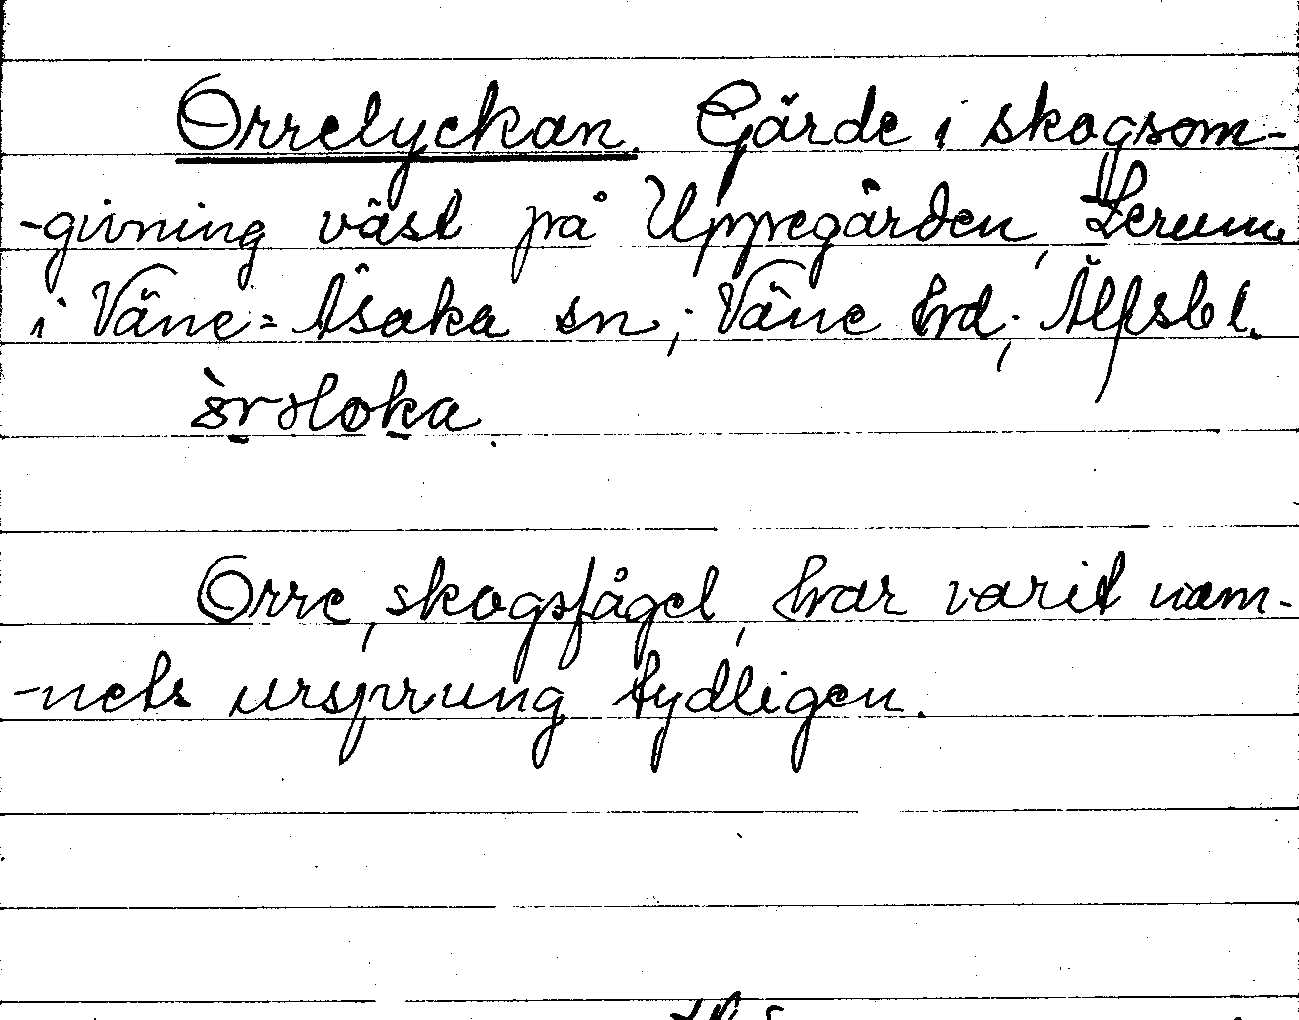 Orrelyckan. Gärde i skogsom-
-givning väst på Uppegården, Lerum
i Väne-Åsaka sn; Väne hd; Älfsb l.
Orre, skogsfågel, har varit nam-
-nets ursprung tydligen.